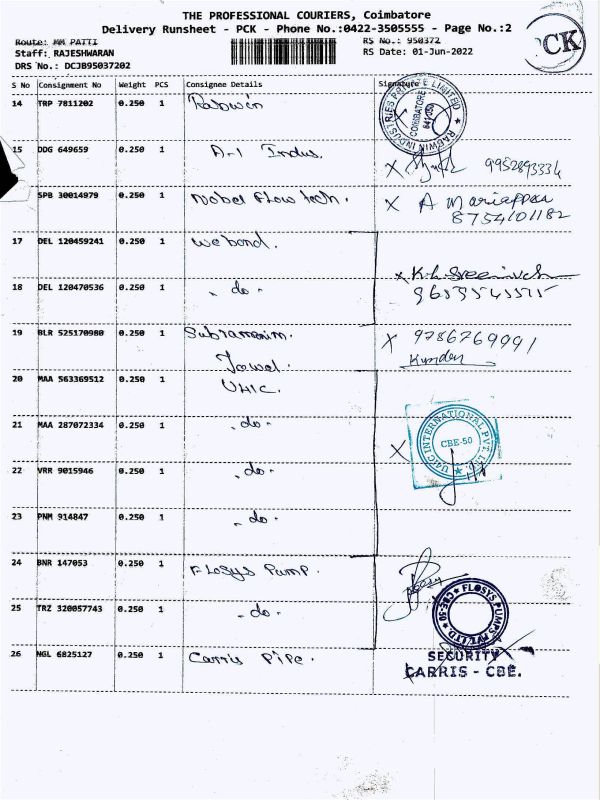 THE PROFESSIONAL COURIERS, Coimbatore
Delivery Runsheet - PCK - Phone No.:0422-3505555 - Page No.:2
Route: MM PATTI
RS No.: 950372
Staff: RAJESHWARAN
RS Date: 01-Jun-2022
DRS No.: DCJB95037202
PCK
S No Consignment No Weight PCS Consignee Details Signature
14 TRP 7811202 0.250 1 Rabwin
RABWIN INDUSTRIES PRIVATE LIMITED
COIMBATORE
15 DDG 649659 0.250 1 A-1 Indus.
X 9952893334
SPB 30014979 0.250 1 Nobel Flow tech.
X A Mariappan
8754101182
17 DEL 120459241 0.250 1 We bond.
18 DEL 120470536 0.250 1 - do -
19 BLR 525170980 0.250 1
X 9786769991
20 MAA 563369512 0.250 1 UHIC.
21 MAA 287072334 0.250 1 - do -
INTERNATIONAL PVT. LTD.
CBE-50
X
22 VRR 9015946 0.250 1 - do -
23 PNM 914847 0.250 1 - do -
24 BNR 147053 0.250 1 Flosys Pump.
25 TRZ 320057743 0.250 1 - do -
FLOSYS PUMPS PVT. LTD.
CBE-50
26 NGL 6825127 0.250 1 Carris Pipe.
SECURITY
CARRIS - CBE.